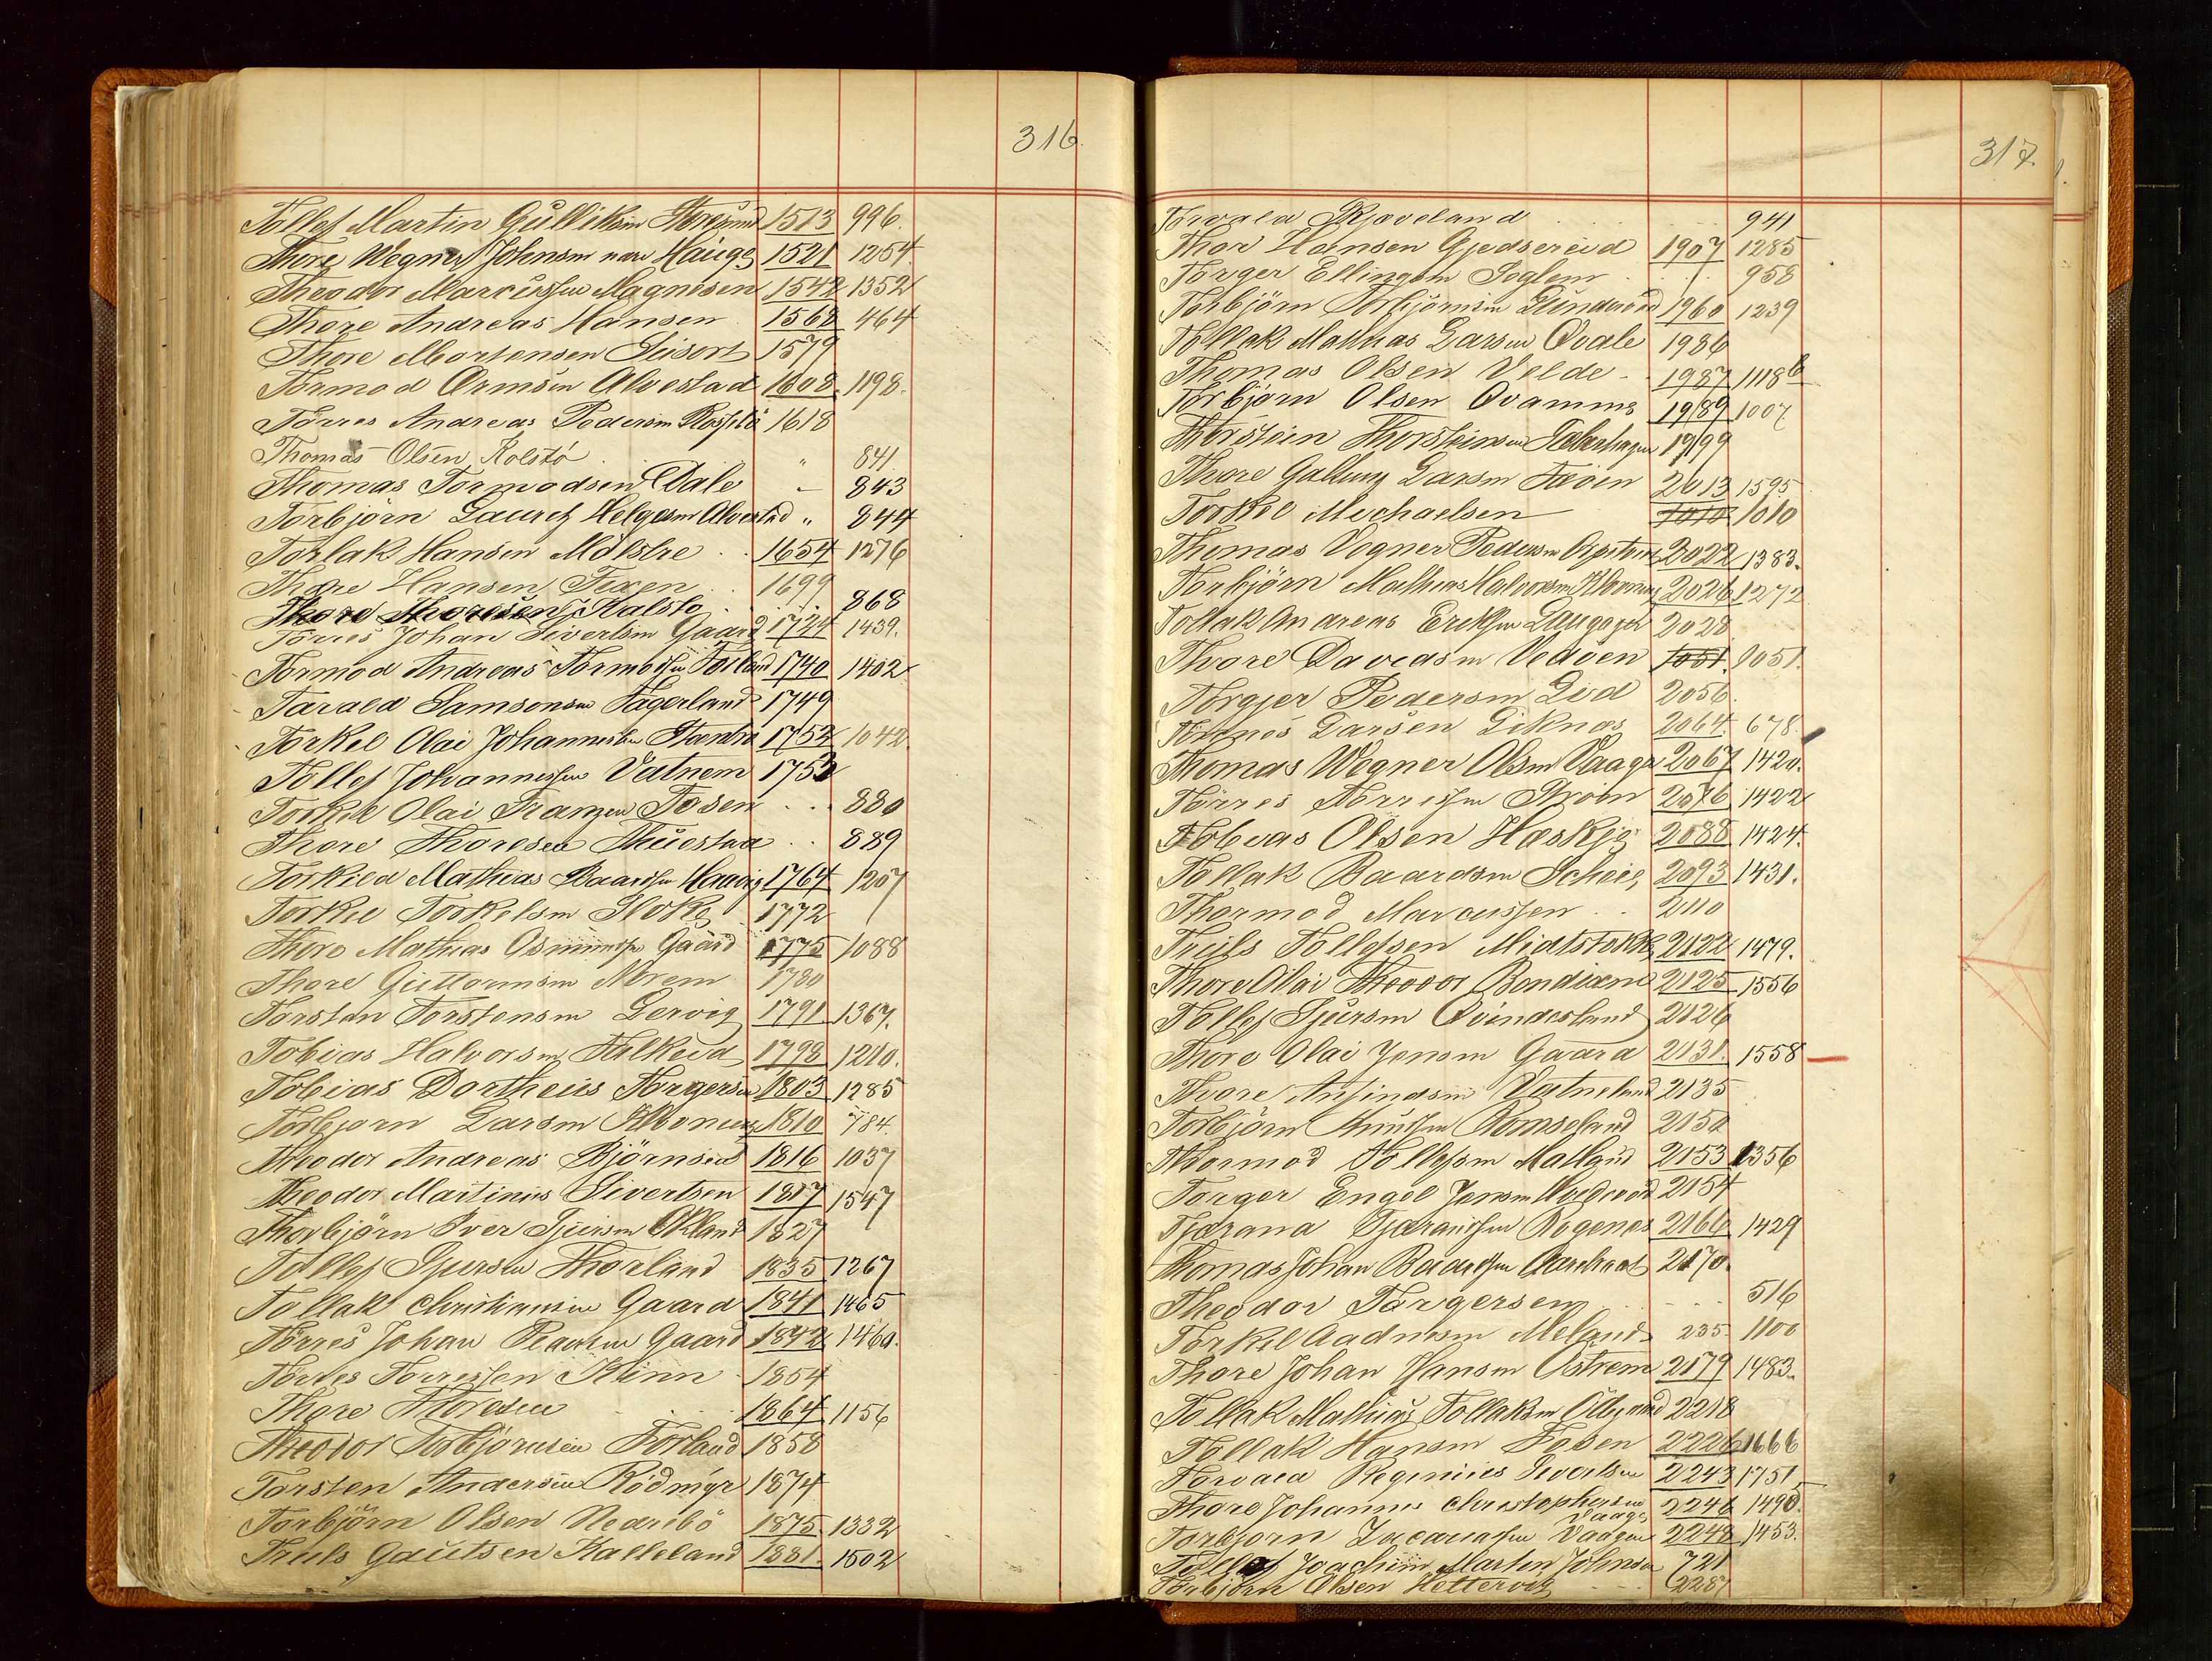 316.
Tollef Martin Gulliksen Storesund 1513 996.
Thore Wegner Johnsen Hauge 1521 1254.
Theodor Marcussen Magnesen 1542 1352
Thore Andreas Hansen 1568 464
Thore Mortensen 1579
Tormod Ormsen Alvestad 1608 1198.
Törres Andreas Pedersen 1618
Thomas Olsen Rolstö " 841
Thomas Tormodsen Dale " 843
Torbjörn Laurits Helgesen Alvestad " 844
Torlak Hansen Mölstre 1654 1276
Thore Hansen 1699
Thore Thoresen Kalstø 868
Törres Johan Sivertsen Gaard 1724 1439.
Tormod Andreas Tormodsen 1740 1402
Tarald Samsonsen Fagerland 1749
Torkel Olai Johannesen 1752 1042
Tollef Johannessen Vatnem 1752
Torkel Olai Franzen Fosen 880
Thore Thoresen 889
Torkild Mathias Baardsen 1764 1207
Torkel Torkelsen 1772
Thore Mathias Gaard 1775 1088
Thore Guttormsen 1780
Torsten Torstensen Lervig 1791 1367.
Tobias Halvorsen Falkeid 1798 1210.
Tobias Dortheus Torgersen 1803 1285
Torbjørn Larsen 1810 784.
Theodor Andreas Björnsen 1816 1037
Theodor Martinius Sivertsen 1817 1547
Thorbjörn Iver Sjursen Økland 1827
Tollef Sjursen Thorland 1835 1267
Tollak Christiansen Gaard 1841 1465
Törres Johan Gaard 1842 1460.
Törres Törressen 1854
Thore Thoresen 1864 1156
Theodor Torbjörnsen Förland 1858
Torsten Andersen Rödmyr 1874
Torbjörn Olsen Nedrebö 1875 1332
Truls Gautsen Kalleland 1881. 1502
317.
Torvald 941
Thor Hansen Gjedsereid 1907 1285
Torger Ellingsen 958
Torbjörn Torbjörnsen 1960 1239
Tollak Mathias Larsen Qvale 1986
Thomas Olsen Velde 1987 1118 b
Torbjörn Olsen Qvamme 1989 1007
Thorstein Thorsteinsen 1999
Thore Larsen 2013 1595
Torkel Michaelsen 1010 1010
Thomas Vogner Pedersen 2022 1383.
Torbjörn Mathias Halvorsen 2026 1272
Tollak Andreas Eriksen 2028
Thore Davidsen Vedöen 1051. 1051.
Torgjer Pedersen Lid 2056.
Larsen 2064. 678.
Thomas Wegner Olsen Vaage 2067 1420.
Törres Törressen 2076 1422
Tobias Olsen 2088 1424.
Tollak Baardsen 2093 1431.
Thormod Marcussen 2110
Truls Tollefsen 2122 1479.
Thore Olai Theodor Bendixen 2125 1556
Tollef Sjursen Qvindesland 2126
Thore Olai Jensen Gaard 2131. 1558
Thore Vatneland 2135
Torbjörn Knudsen 2150
Thormod Tollefsen 2153 1356
Torger Engel Jensen 2154
Tjærand Tjærandsen 2166 1429
Thomas Johan Baardsen 2170.
Theodor Torgersen 516
Torkel Aadnesen Meland 235. 1100
Thore Johan Hansen Östrem 2179 1483.
Tollak Mathias Tollaksen 2218
Tollak Hansen Fosen 2226 1666
Torvald Reginius Sivertsen 2243 1751.
Thore Johannes Christophersen Vaage 2246 1490.
Torbjörn Zacariasen Vaagen 2248 1453.
Tollef Joachim Martin Johnsen 721
Torbjörn Olsen Hettervig 2287